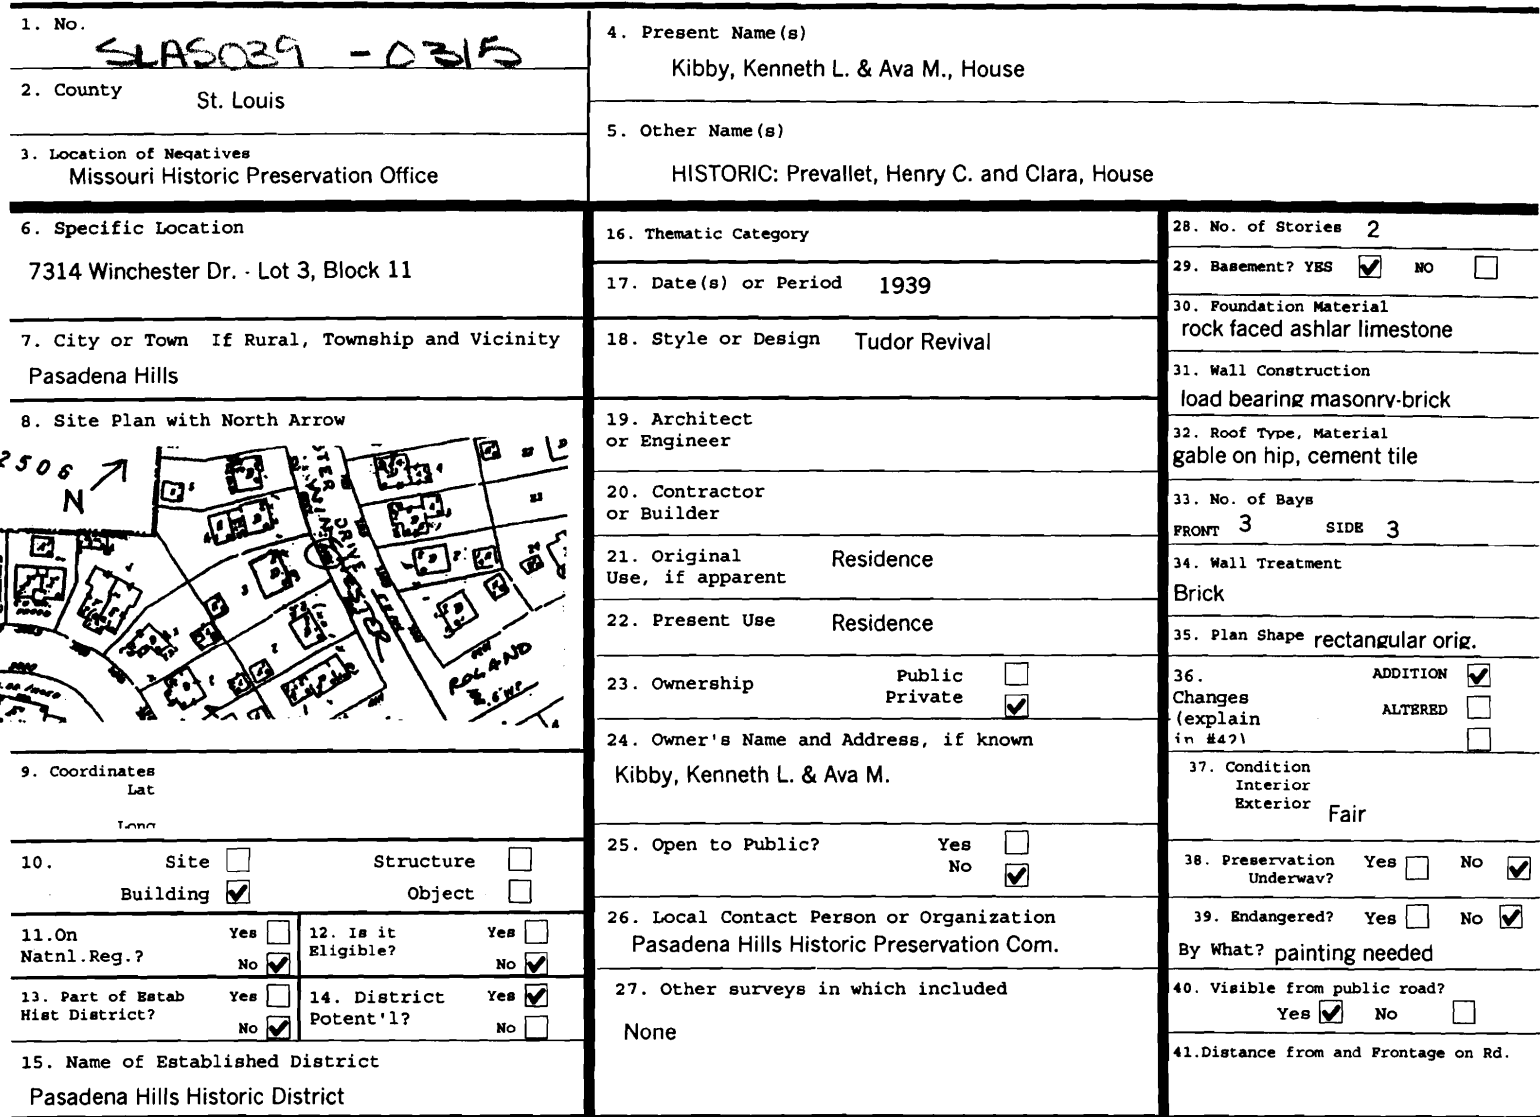 1. No.
SLAS039 - 0315
2. County St. Louis
3. Location of Negatives
Missouri Historic Preservation Office
4. Present Name(s)
Kibby, Kenneth L. & Ava M., House
5. Other Name(s)
HISTORIC: Prevallet, Henry C. and Clara, House
6. Specific Location
7314 Winchester Dr. - Lot 3, Block 11
7. City or Town If Rural, Township and Vicinity
Pasadena Hills
8. Site Plan with North Arrow
2506
N
DRIVE
ROLAND
9. Coordinates
Lat
Long
10. Site Structure
Building Object
11.On
Natnl.Reg.?
Yes
No
12. Is it
Eligible?
Yes
No
13. Part of Estab
Hist District?
Yes
No
14. District
Potent'l?
Yes
No
15. Name of Established District
Pasadena Hills Historic District
16. Thematic Category
17. Date(s) or Period 1939
18. Style or Design Tudor Revival
19. Architect
or Engineer
20. Contractor
or Builder
21. Original
Use, if apparent
Residence
22. Present Use Residence
23. Ownership
Public
Private
24. Owner's Name and Address, if known
Kibby, Kenneth L. & Ava M.
25. Open to Public?
Yes
No
26. Local Contact Person or Organization
Pasadena Hills Historic Preservation Com.
27. Other surveys in which included
None
28. No. of Stories 2
29. Basement? YES NO
30. Foundation Material
rock faced ashlar limestone
31. Wall Construction
load bearing masonry-brick
32. Roof Type, Material
gable on hip, cement tile
33. No. of Bays
FRONT 3 SIDE 3
34. Wall Treatment
Brick
35. Plan Shape rectangular orig.
36.
Changes
(explain
in #42)
ADDITION
ALTERED
37. Condition
Interior
Exterior Fair
38. Preservation
Underway?
Yes No
39. Endangered? Yes No
By What? painting needed
40. Visible from public road?
Yes No
41.Distance from and Frontage on Rd.